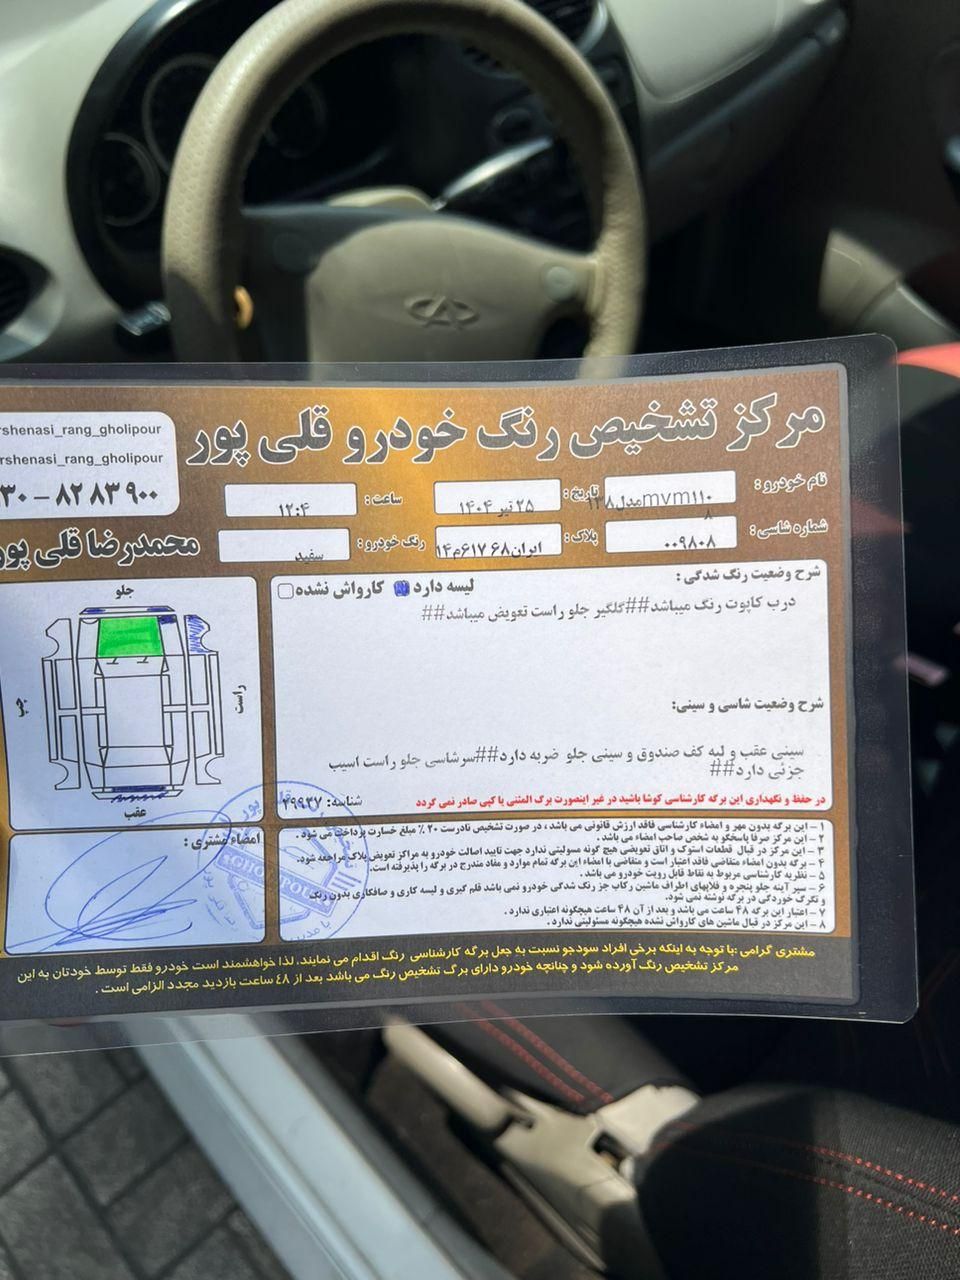 مرکز تشخیص رنگ خودرو قلی پور
rshenasi_rang_gholipour
rshenasi_rang_gholipour
۳۰ - ۸۲ ۸۳ ۹۰۰
محمدرضا قلی پور
نام خودرو : mvm۱۱۰مدل۱۳۸۸
تاریخ : ۲۵ تیر ۱۴۰۴
ساعت : ۱۲:۴
شماره شاسی : ۰۰۹۸۰۸
پلاک : ایران۶۸ ۶۱۷م۱۴
رنگ خودرو : سفید
شرح وضعیت رنگ شدگی :
لیسه دارد
کارواش نشده
درب کاپوت رنگ میباشد##گلگیر جلو راست تعویض میباشد##
شرح وضعیت شاسی و سینی:
سینی عقب و لبه کف صندوق و سینی جلو ضربه دارد##سرشاسی جلو راست اسیب
جزئی دارد##
در حفظ و نگهداری این برگه کارشناسی کوشا باشید در غیر اینصورت برگ المثنی یا کپی صادر نمی گردد
شناسه: ۲۹۹۳۷
جلو
راست
چپ
عقب
امضاء مشتری :
GHOLIPOUR
۱ - این برگه بدون مهر و امضاء کارشناسی فاقد ارزش قانونی می باشد ، در صورت تشخیص نادرست ۲۰ ٪ مبلغ خسارت پرداخت می شود .
۲ - این مرکز صرفا پاسخگو به شخص صاحب امضاء می باشد .
۳ - این مرکز در قبال قطعات استوک و اتاق تعویضی هیچ گونه مسولیتی ندارد جهت تایید اصالت خودرو به مراکز تعویض پلاک مراجعه شود.
۴ - برگه بدون امضاء متقاضی فاقد اعتبار است و متقاضی با امضاء این برگه تمام موارد و مفاد مندرج در برگه را پذیرفته است.
۵ - نظریه کارشناسی مربوط به نقاط قابل رویت خودرو می باشد .
۶ - سپر آینه جلو پنجره و فلاپهای اطراف ماشین رکاب جز رنگ شدگی خودرو نمی باشد قلم گیری و لیسه کاری و صافکاری بدون رنگ
و تگرگ خوردگی در برگه نوشته نمی شود.
۷ - اعتبار این برگه ۴۸ ساعت می باشد و بعد از آن ۴۸ ساعت هیچگونه اعتباری ندارد .
۸ - این مرکز در قبال ماشین های کارواش نشده هیچگونه مسئولیتی ندارد .
مشتری گرامی :با توجه به اینکه برخی افراد سودجو نسبت به جعل برگه کارشناسی رنگ اقدام می نمایند، لذا خواهشمند است خودرو فقط توسط خودتان به این
مرکز تشخیص رنگ آورده شود و چنانچه خودرو دارای برگ تشخیص رنگ می باشد بعد از ٤٨ ساعت بازدید مجدد الزامی است .